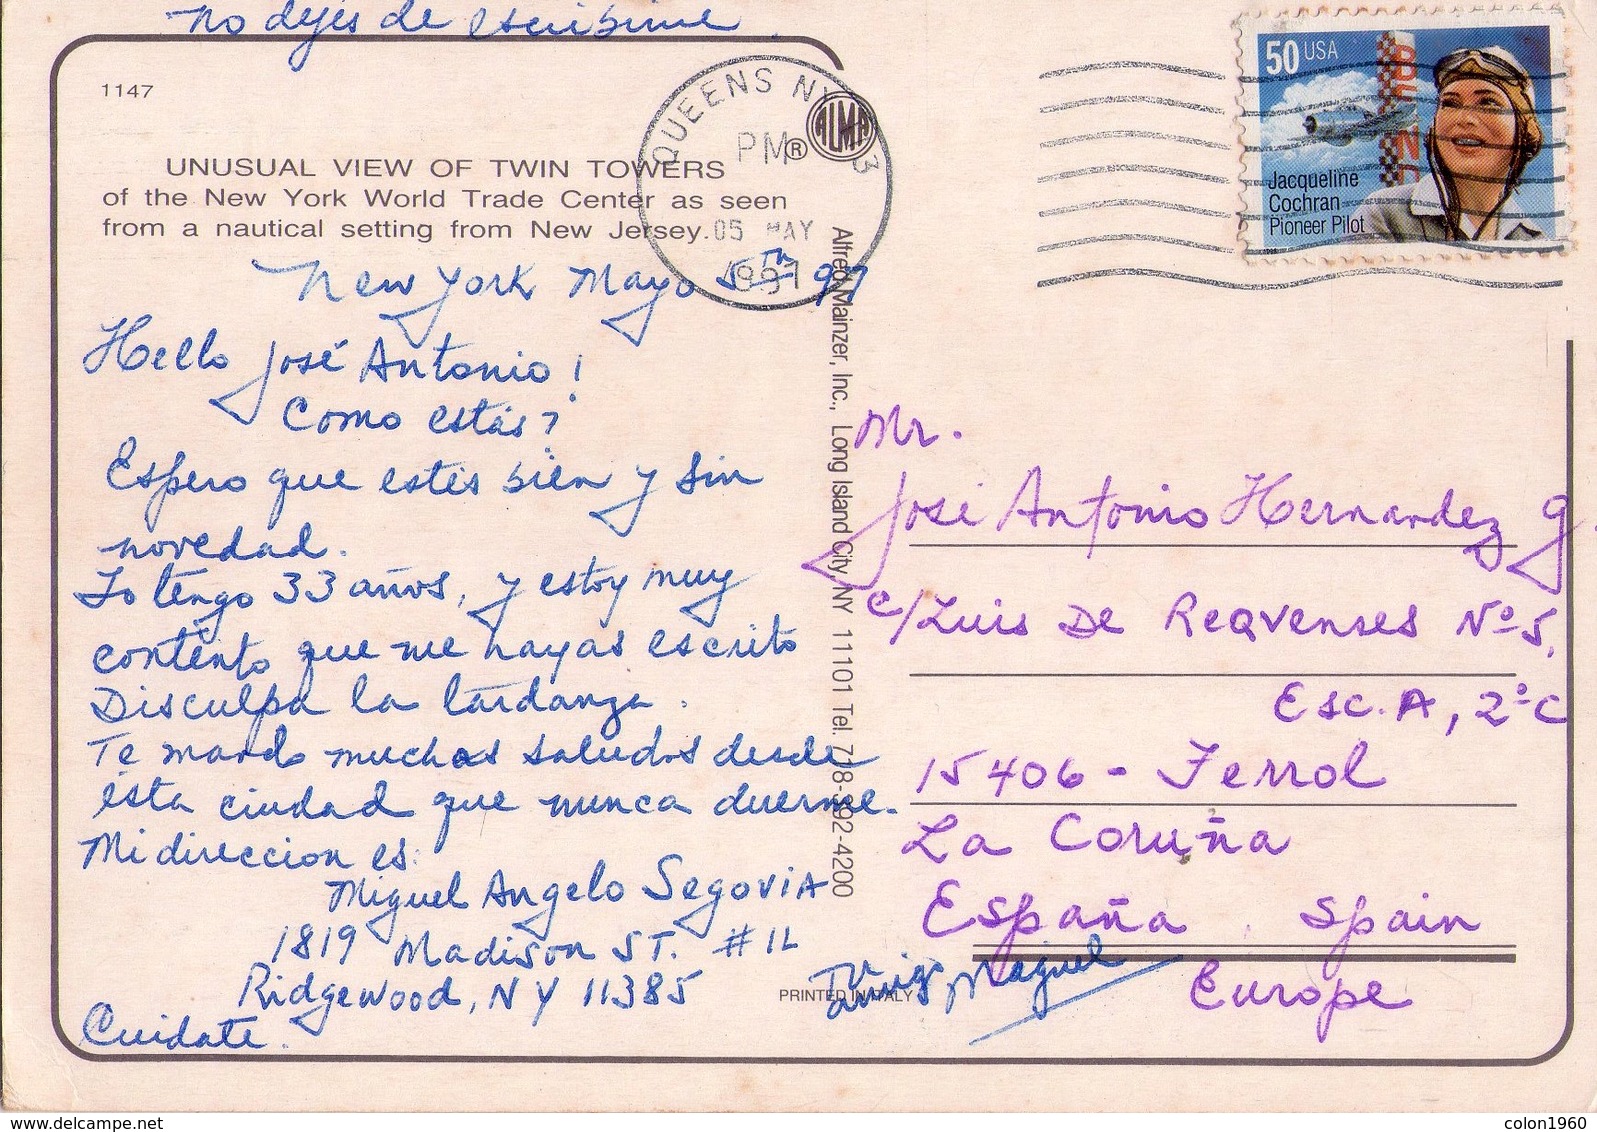 no dejes de escribirme.
1147
UNUSUAL VIEW OF TWIN TOWERS
of the New York World Trade Center as seen
from a nautical setting from New Jersey.
QUEENS NY
PM
05 MAY
1997
® ALMA
50 USA
Jacqueline
Cochran
Pioneer Pilot
New York Mayo 5th 97
Hello José Antonio!
Como estás?
Espero que estés bien y sin
novedad.
Yo tengo 33 años, y estoy muy
contento que me hayas escrito
Disculpa la tardanza.
Te mando muchos saludos desde
ésta ciudad que nunca duerme.
Mi direccion es:
Miguel Angelo Segovia
1819 Madison ST. #1L
Ridgewood, NY 11385
Cuidate.
Tu amigo Miguel
Alfred Mainzer, Inc., Long Island City, NY 11101 Tel. 718-392-4200
PRINTED IN ITALY
Mr.
José Antonio Hernandez G.
c/Luis De Reqvenses Nº5,
Esc. A, 2º C
15406 - Ferrol
La Coruña
España. Spain
Europe
delcampe.net
colon1960